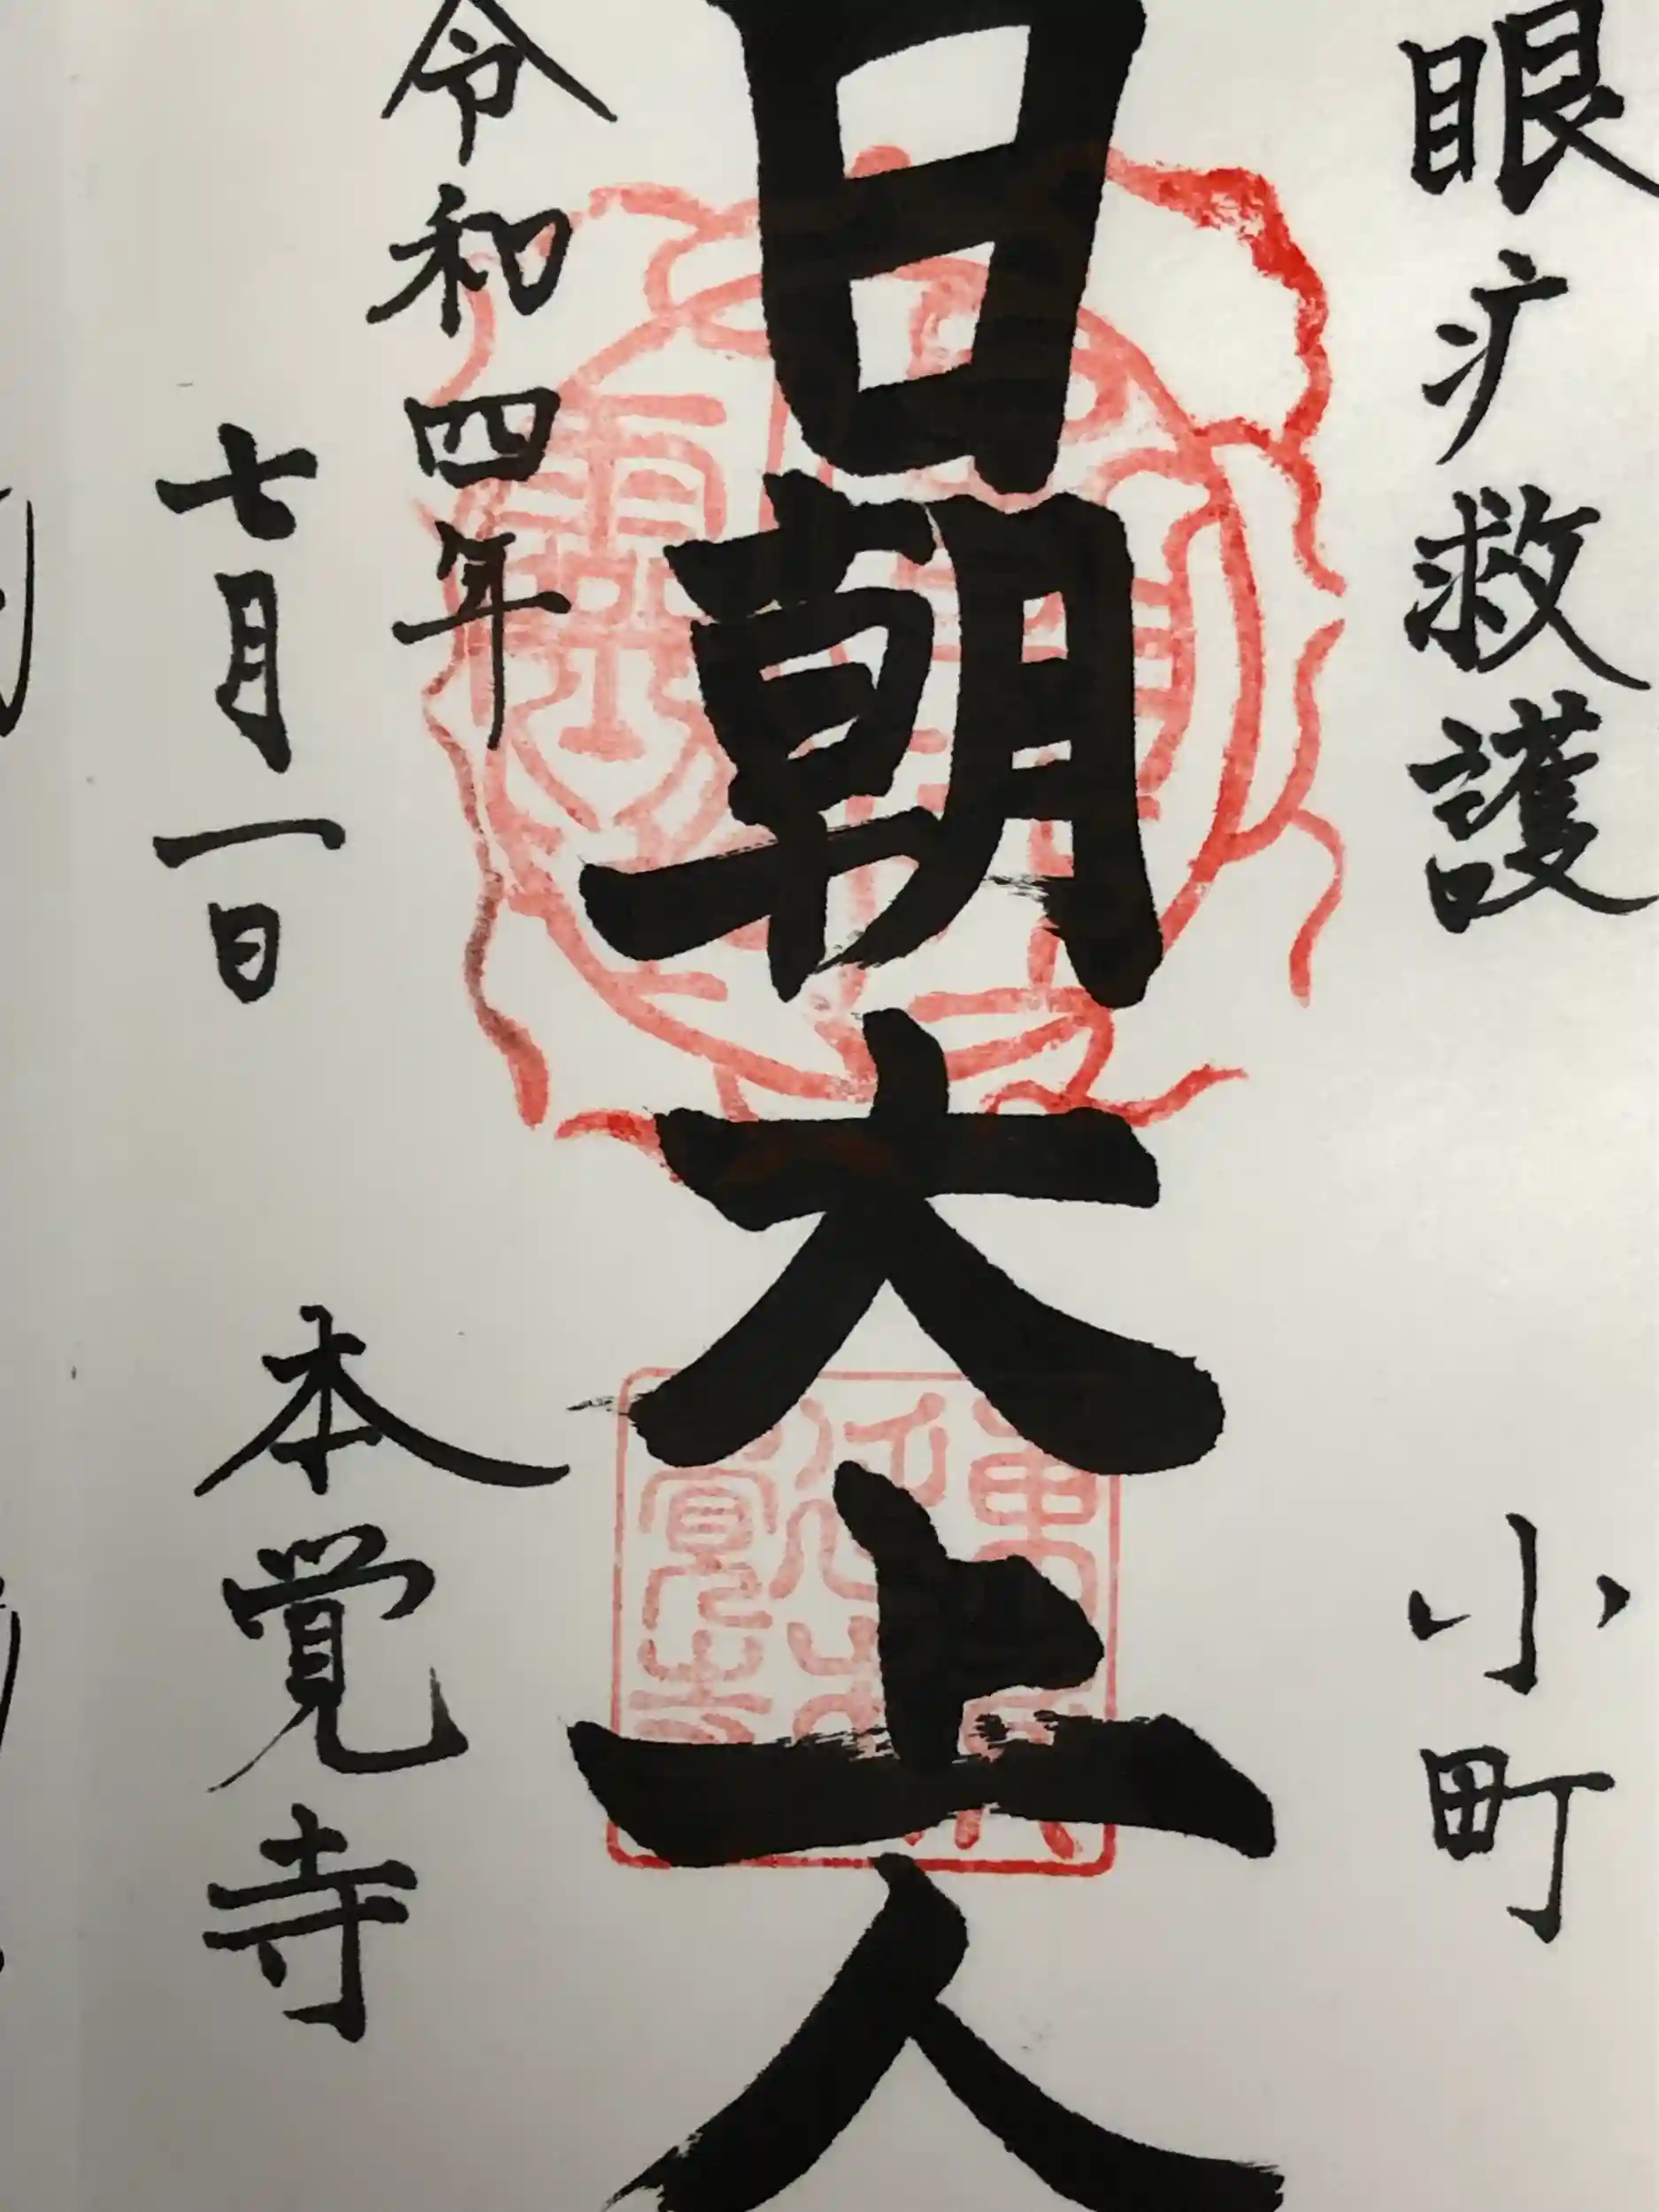 眼疒救護
小町
日朝大上人
令和四年
七月一日
本覚寺